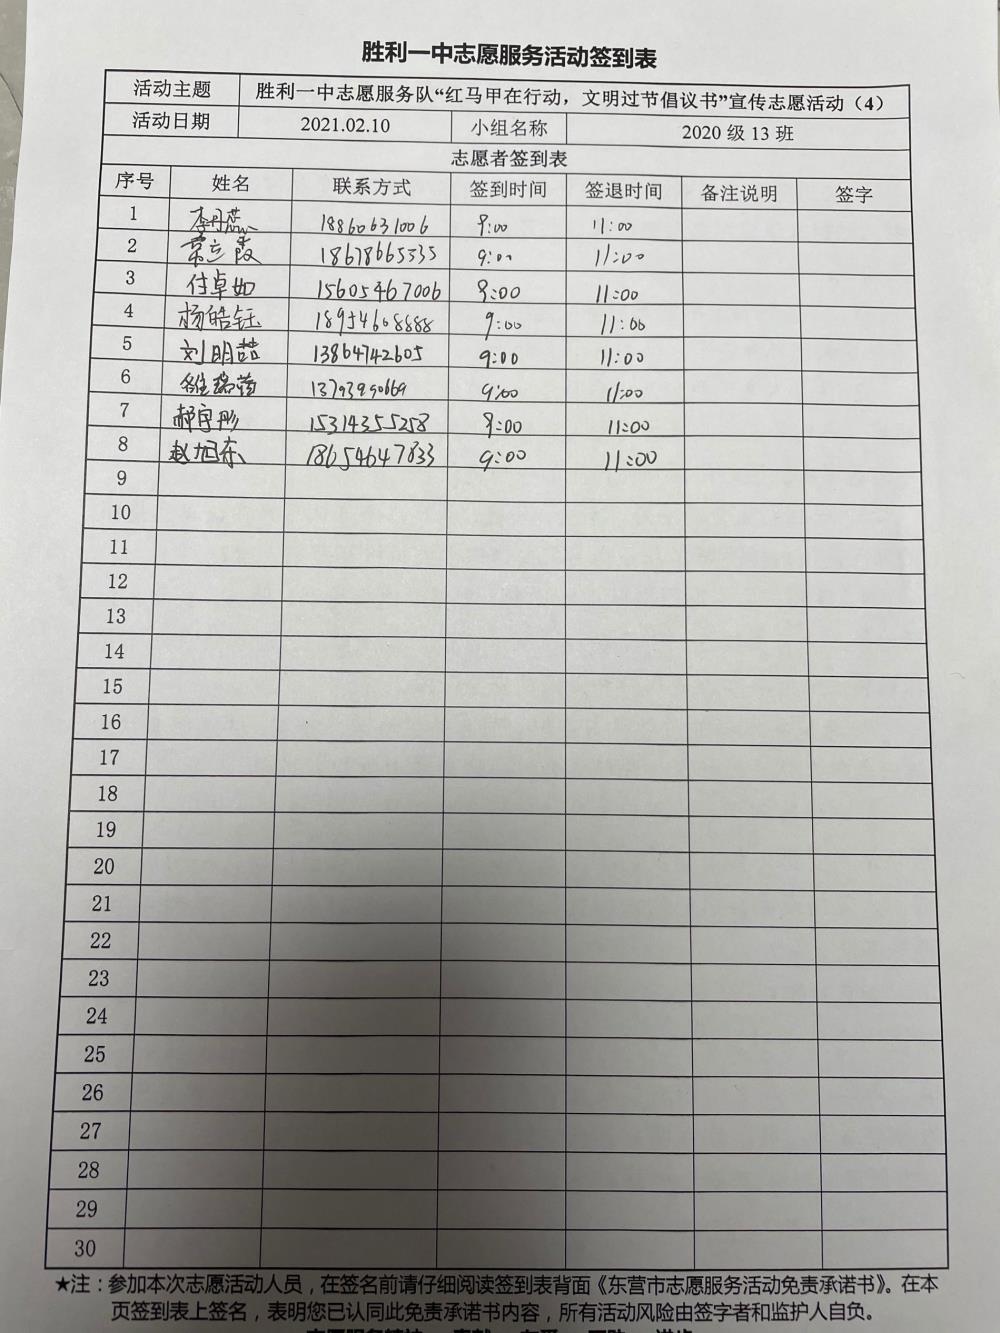 胜利一中志愿服务活动签到表
活动主题 胜利一中志愿服务队“红马甲在行动，文明过节倡议书”宣传志愿活动（4）
活动日期 2021.02.10 小组名称 2020 级 13 班
志愿者签到表
序号 姓名 联系方式 签到时间 签退时间 备注说明 签字
1 李丹蕊 18860631006 9:00 11:00
2 常立霞 18678665535 9:00 11:00
3 付卓如 15605467006 9:00 11:00
4 杨皓钰 18954608888 9:00 11:00
5 刘明喆 13864742605 9:00 11:00
6 13793290669 9:00 11:00
7 郝宇彤 15314355258 9:00 11:00
8 赵旭东 18654647833 9:00 11:00
9
10
11
12
13
14
15
16
17
18
19
20
21
22
23
24
25
26
27
28
29
30
★注：参加本次志愿活动人员，在签名前请仔细阅读签到表背面《东营市志愿服务活动免责承诺书》。在本
页签到表上签名，表明您已认同此免责承诺书内容，所有活动风险由签字者和监护人自负。